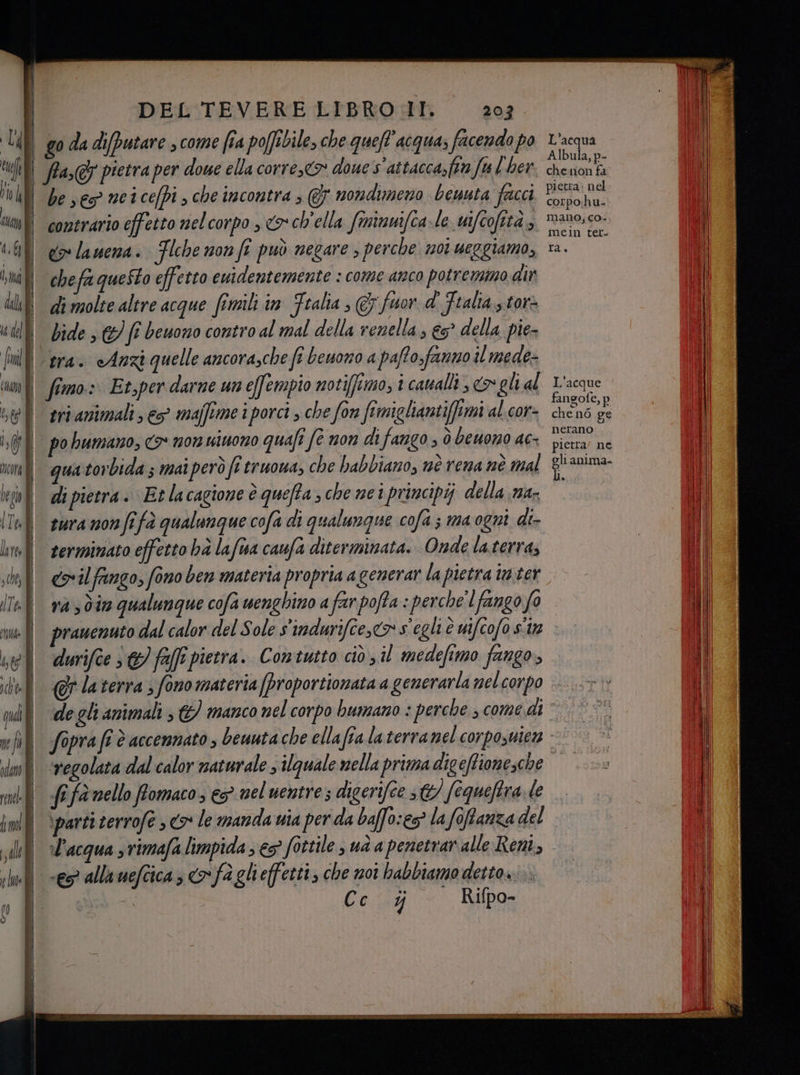 DEL TEVERE LIBRO II. 203
go da diſputare, come ſia poſſibile, che queſt'acqua, facendo po
ſta, & pietra per doue ella corre, & doue s'attacca, ſin ſu l'her
be, & ne i ceſpi, che incontra, & nondimeno beuuta facci
contrario effetto nel corpo, & ch'ella ſminuiſca le uiſcoſità,
& lauena. Ilche non ſi può negare, perche noi ueggiamo,
che fa queſto effetto euidentemente: come anco potremmo dir
di molte altre acque ſimili in Italia, & fuor d'Italia, tor-
bide, & ſi beuono contro al mal della renella, & della pie-
tra. Anzi quelle ancora, che ſi beuono a paſto, fanno il mede-
ſimo: Et, per darne un eſſempio notiſſimo, i caualli, & gli al
tri animali, & maſſime i porci, che ſon ſimigliantiſſimi al cor-
po humano, & non uiuono quaſi ſe non di fango, ò beuono ac-
qua torbida; mai però ſi truoua, che habbiano, nè rena nè mal
di pietra. Et la cagione è queſta, che ne i principij della na-
tura non ſi fà qualunque coſa di qualunque coſa; ma ogni di-
terminato effetto hà la ſua cauſa diterminata. Onde la terra,
& il fango, ſono ben materia propria a generar la pietra in ter
ra, ò in qualunque coſa uenghino a far poſta: perche'l fango ſo
prauenuto dal calor del Sole s'induriſce, & s'egli è uiſcoſo s'in
duriſce, & faſſi pietra. Con tutto ciò, il medeſimo fango,
& la terra, ſono materia ſproportionata a generarla nel corpo
de gli animali, & manco nel corpo humano: perche, come di
ſopra ſi è accennato, beuuta che ella ſia la terra nel corpo, uien
regolata dal calor naturale, ilquale nella prima digeſtione, che
ſi fà nello ſtomaco, & nel uentre; digeriſce, & ſequeſtra le
parti terroſe, & le manda uia per da baſſo: & la ſoſtanza del
l'acqua, rimaſa limpida, & ſottile, uà a penetrar alle Reni,
& alla ueſcica, & fà gli effetti, che noi habbiamo detto.
Cc ij Riſpo-
L'acqua
Albula, p-
che non fa
pietra nel
corpo hu-
mano, co-
me in ter-
ra.
L'acque
fangoſe, p
che nō ge
nerano
pietra ne
gli anima-
li.